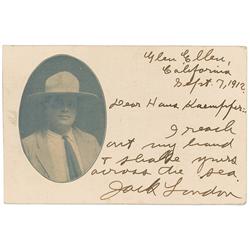 Glen Ellen,
California
Sept. 7, 1912
Dear Hans Kaempfer:
I reach
out my hand
& shake yours
across the sea.
Jack London